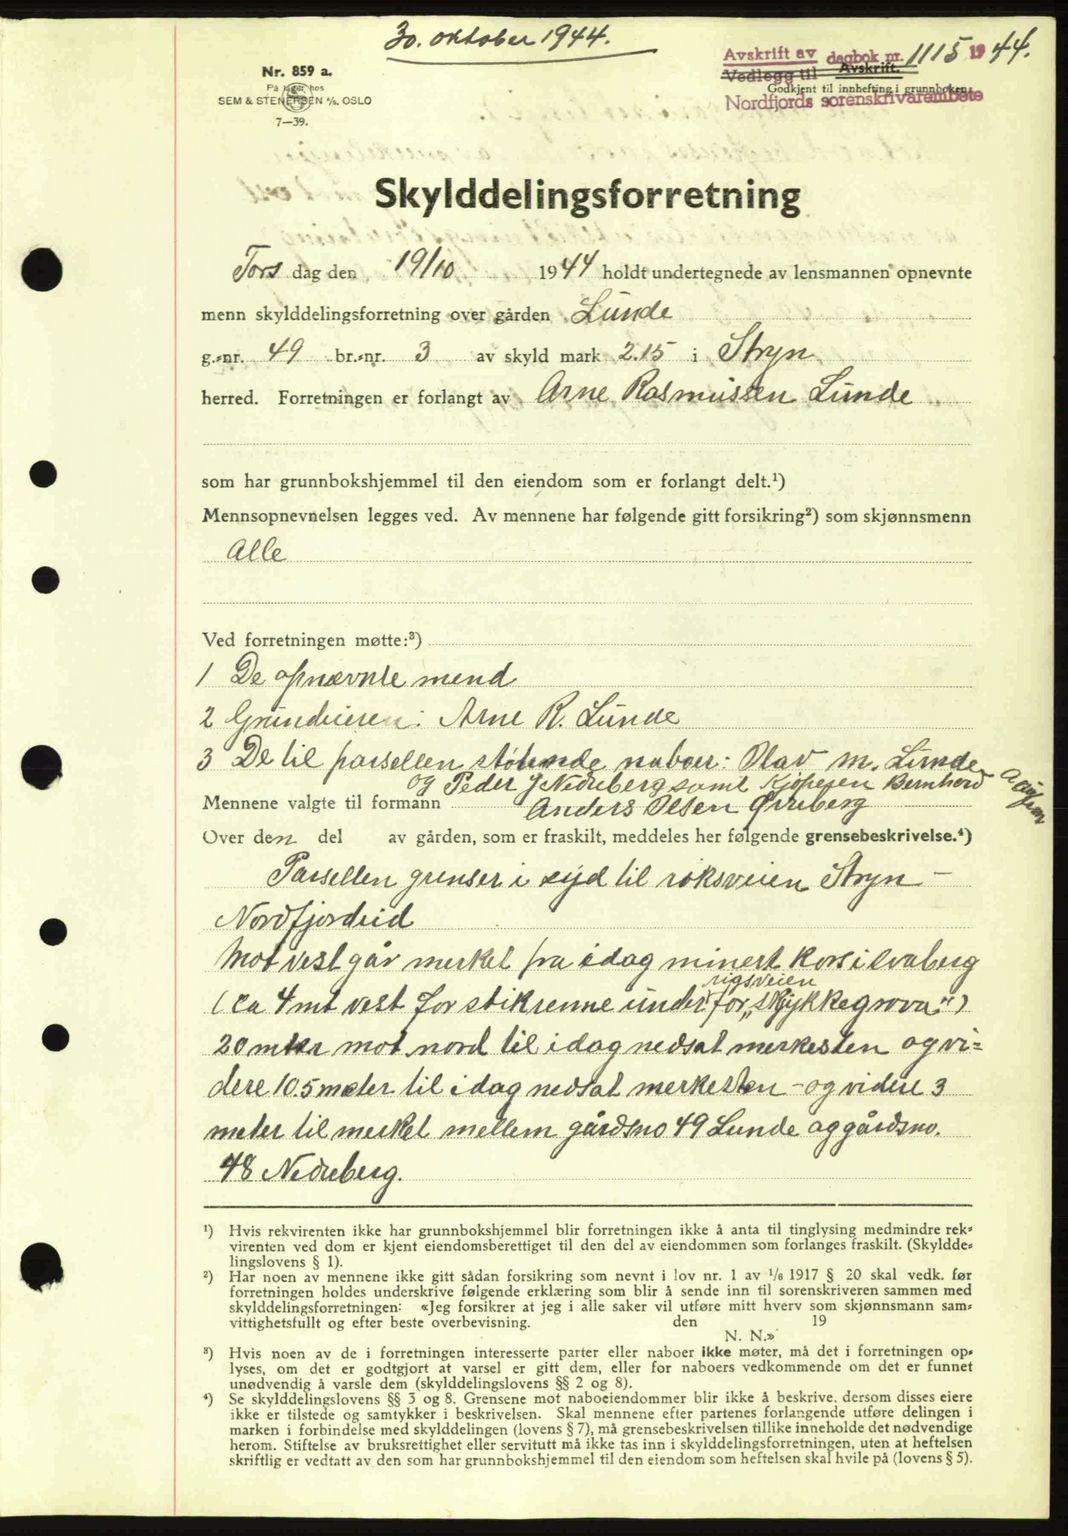 30. oktober 1944.
Avskrift av dagbok nr. 1115 1944.
Vedlegg til Avskrift.
Godkjent til innhefting i grunnboken
Nordfjords sorenskrivarembete
Nr. 859 a.
På lager hos
SEM & STENERSEN A/S, OSLO
7—39.
Skylddelingsforretning
Tors dag den 19/10 1944 holdt undertegnede av lensmannen opnevnte
menn skylddelingsforretning over gården Lunde
g.-nr. 49 br.-nr. 3 av skyld mark 2.15 i Stryn
herred. Forretningen er forlangt av Arne Rasmussen Lunde
som har grunnbokshjemmel til den eiendom som er forlangt delt.¹)
Mennsopnevnelsen legges ved. Av mennene har følgende gitt forsikring²) som skjønnsmenn
Alle
Ved forretningen møtte:³)
1 De opnævnte mend
2 Grundeieren: Arne R. Lunde
3 De til parsellen støtende naboer: Olav M. Lunde
og Peder J Nedreberg samt Kjøperen Bernhard
Mennene valgte til formann Anders Olsen Øvreberg
Over den del av gården, som er fraskilt, meddeles her følgende grensebeskrivelse.⁴)
Parsellen grenser i syd til riksveien Stryn -
Nordfjordeid
Mot vest går merket fra idag minert kors i svaberg
(ca 4 mt vest for stikrenne under rigsveien for „skjykkegrova")
20 mtr mot nord til idag nedsat merkesten og vi=
dere 10.5 meter til idag nedsat merkesten - og videre 3
meter til merket mellem gårdsno 49 Lunde og gårdsno.
48 Nedreberg.
¹) Hvis rekvirenten ikke har grunnbokshjemmel blir forretningen ikke å anta til tinglysing medmindre rek-
virenten ved dom er kjent eiendomsberettiget til den del av eiendommen som forlanges fraskilt. (Skyldde-
lingslovens § 1).
²) Har noen av mennene ikke gitt sådan forsikring som nevnt i lov nr. 1 av 1/6 1917 § 20 skal vedk. før
forretningen holdes underskrive følgende erklæring som blir å sende inn til sorenskriveren sammen med
skylddelingsforretningen: «Jeg forsikrer at jeg i alle saker vil utføre mitt hverv som skjønnsmann sam-
vittighetsfullt og efter beste overbevisning. den 19
N. N.»
³) Hvis noen av de i forretningen interesserte parter eller naboer ikke møter, må det i forretningen op-
lyses, om det er godtgjort at varsel er gitt dem, eller for naboers vedkommende om det er funnet
unødvendig å varsle dem (skylddelingslovens §§ 2 og 8).
⁴) Se skylddelingslovens §§ 3 og 8. Grensene mot naboeiendommer blir ikke å beskrive, dersom disses eiere
ikke er tilstede og samtykker i beskrivelsen. Skal mennene efter partenes forlangende utføre delingen i
marken i forbindelse med skylddelingen (lovens § 7), må grensebeskrivelsen tillike inneholde det nødvendige
herom. Stiftelse av bruksrettighet eller servitutt må ikke tas inn i skylddelingsforretningen, uten at heftelsen
skriftlig er vedtatt av den som har grunnbokshjemmel til den eiendom som heftelsen skal hvile på (lovens § 5).